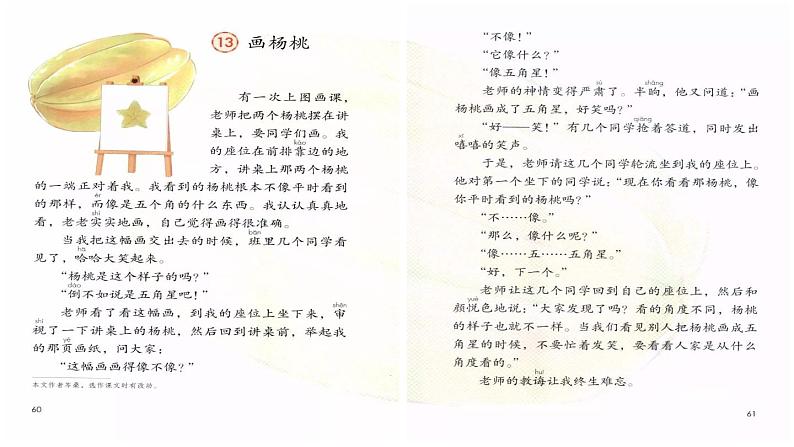 13 画杨桃
有一次上图画课，
老师把两个杨桃摆在讲
桌上，要同学们画。我
kào
的座位在前排靠边的地
方，讲桌上那两个杨桃
的一端正对着我。我看到的杨桃根本不像平时看到
ér
的那样，而像是五个角的什么东西。我认认真真地
shí
看，老老实实地画，自己觉得画得很准确。
bān
当我把这幅画交出去的时候，班里几个同学看
hā
见了，哈哈大笑起来。
“杨桃是这个样子的吗？”
dào
“倒不如说是五角星吧！”
shěn
老师看了看这幅画，到我的座位上坐下来，审
shì
视了一下讲桌上的杨桃，然后回到讲桌前，举起我
yè
的那页画纸，问大家：
“这幅画画得像不像？”
本文作者岑桑，选作课文时有改动。
60
“不像！”
“它像什么？”
“像五角星！”
sù shǎng
老师的神情变得严肃了。半晌，他又问道：“画
杨桃画成了五角星，好笑吗？”
qiǎng
“好——笑！”有几个同学抢着答道，同时发出
xī
嘻嘻的笑声。
于是，老师请这几个同学轮流坐到我的座位上。
他对第一个坐下的同学说：“现在你看看那杨桃，像
你平时看到的杨桃吗？”
“不……像。”
“那么，像什么呢？”
“像……五……五角星。”
“好，下一个。”
老师让这几个同学回到自己的座位上，然后和
yuè
颜悦色地说：“大家发现了吗？看的角度不同，杨桃
的样子也就不一样。当我们看见别人把杨桃画成五
角星的时候，不要忙着发笑，要看看人家是从什么
角度看的。”
huì
老师的教诲让我终生难忘。
61